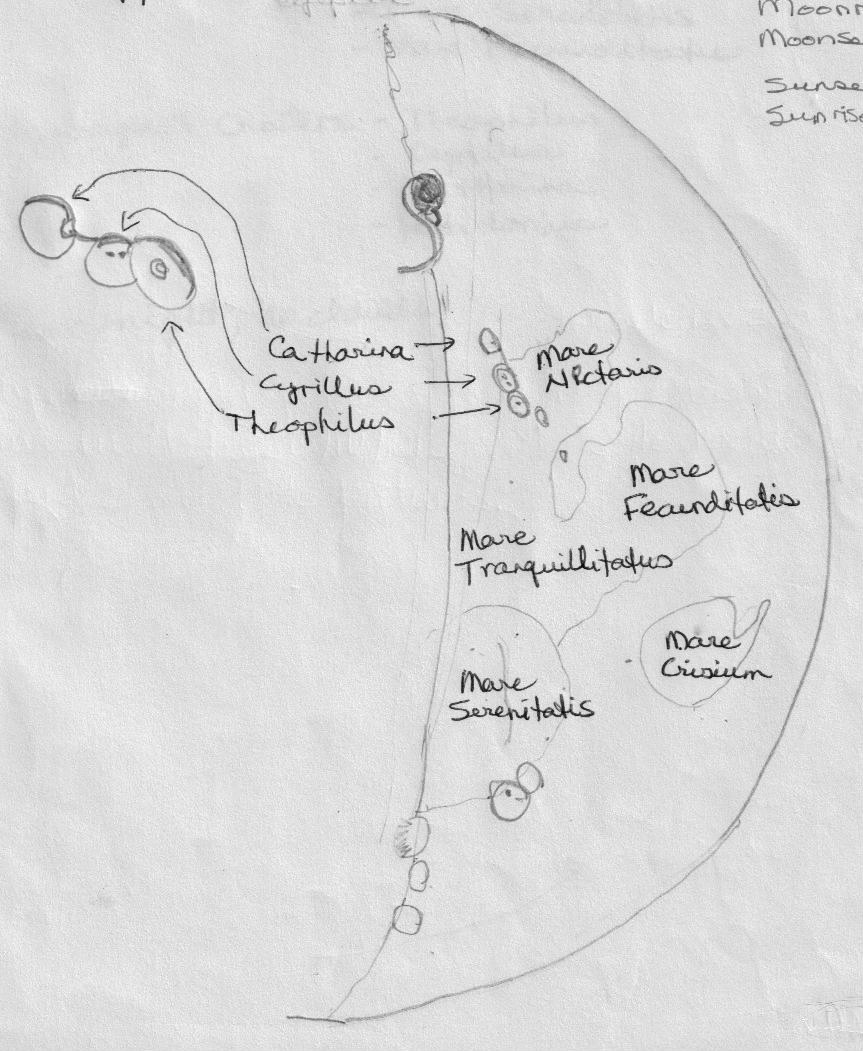 Sunse
Sunrise
Catharina
Cyrillus
Theophilus
Mare
Nectaris
Mare
Fecunditatis
Mare
Tranquillitatus
Mare
Crisium
Mare
Serenitatis